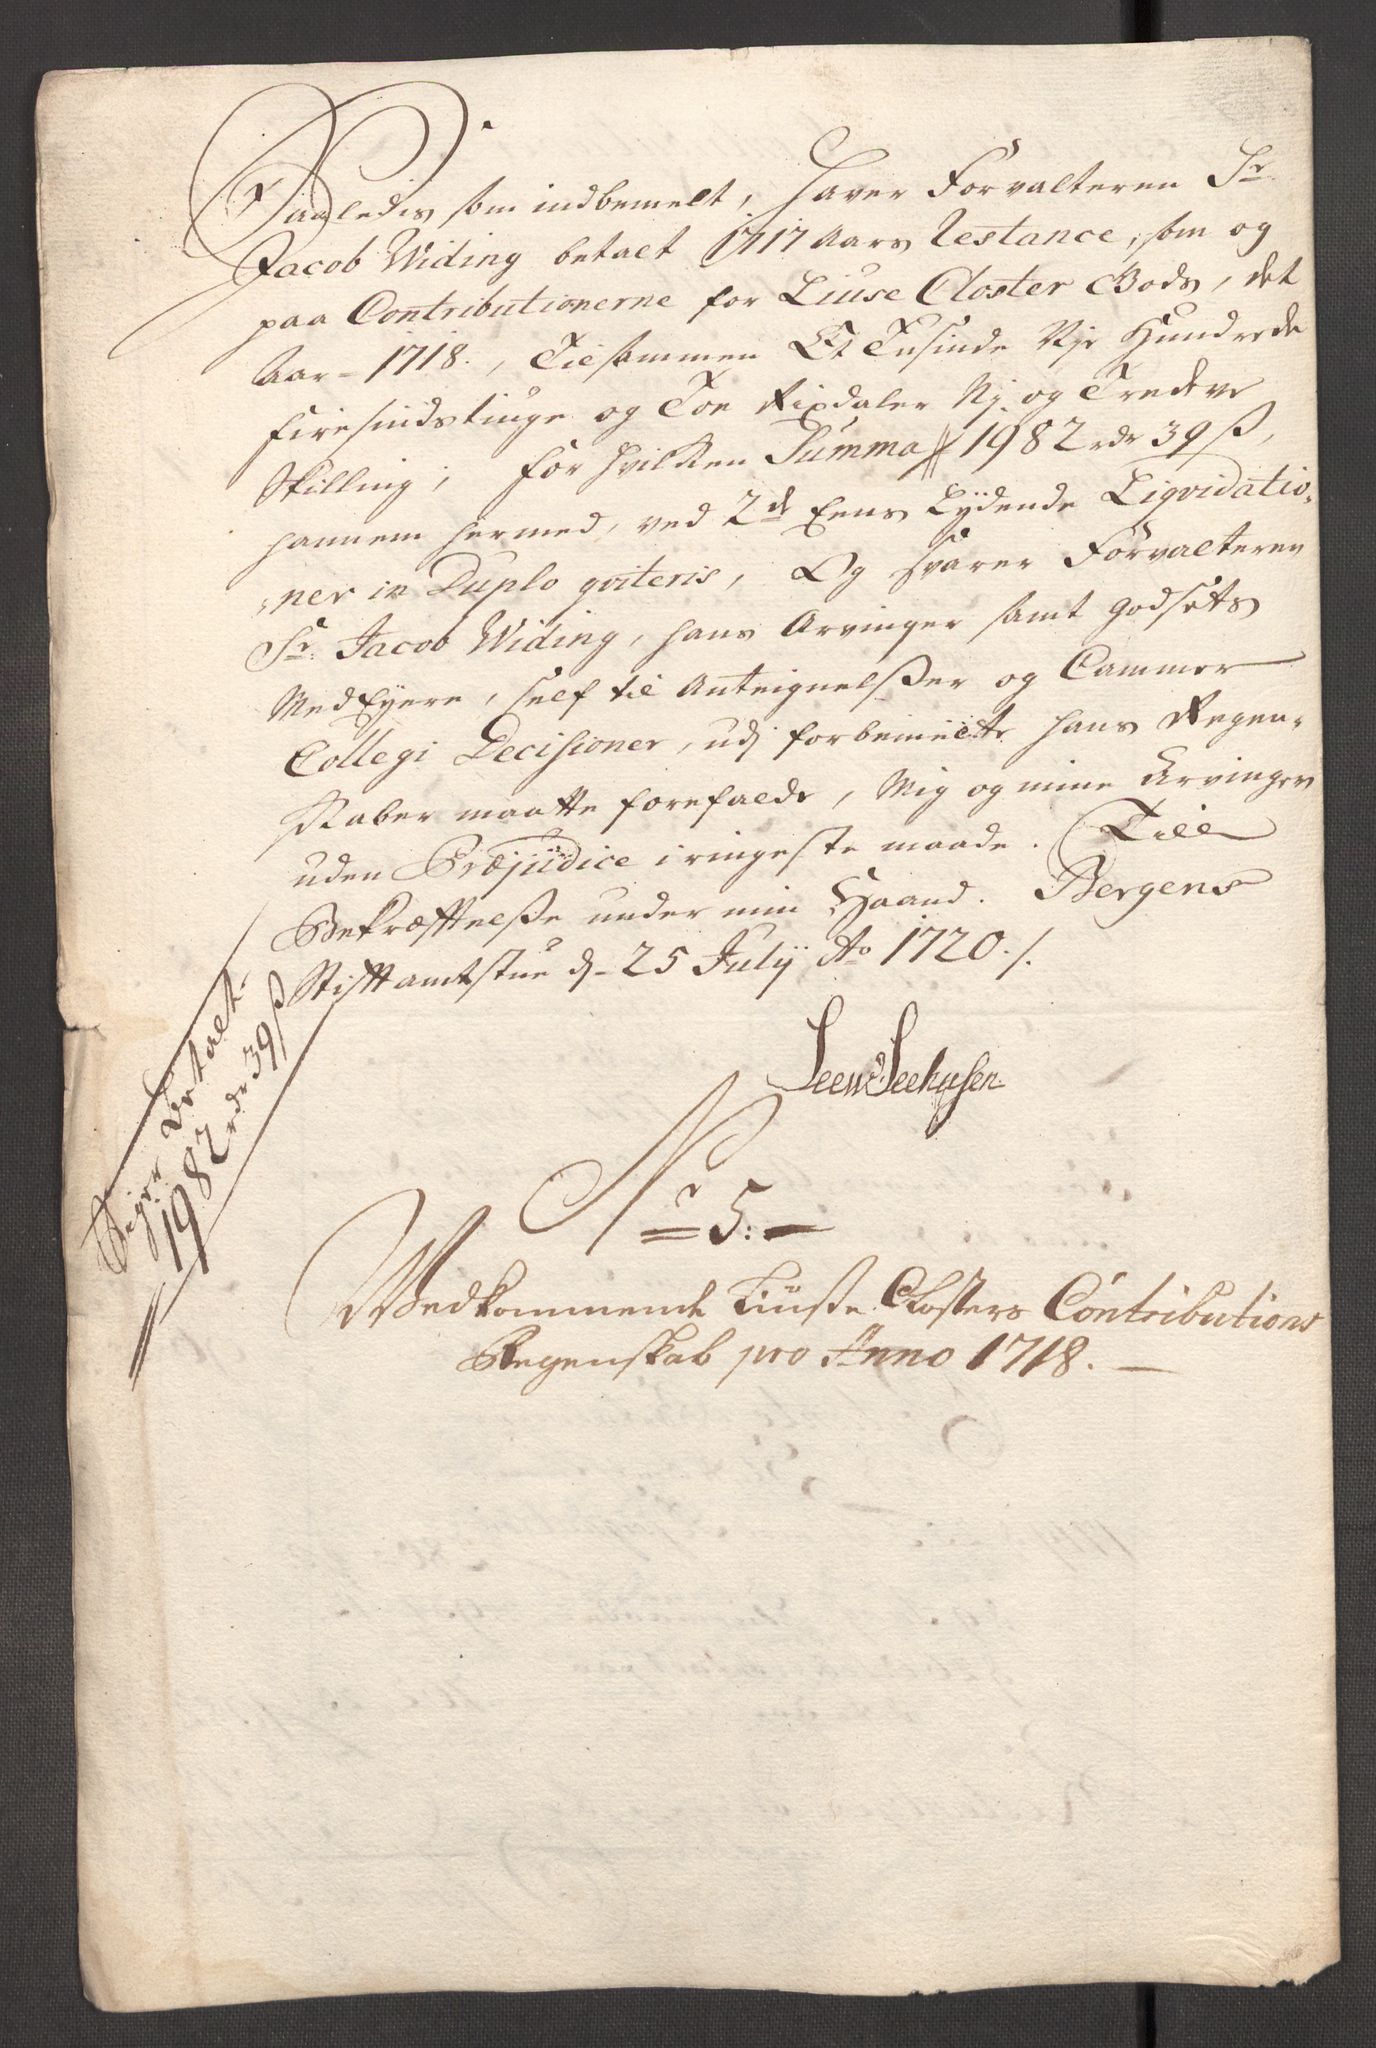 Saaledis som indbemelt, Haver Forvalteren Sr
Jacob Widing betalt 1717 Aars Restance, som og
paa Contributionerne for Liuse Closter Gods, det
Aar - 1718., Tilsammen Et Tusinde Nje Hundrede
firesindstiuge og Toe Rixdaler Nj og Tredeve
Skilling, for hvilken Summa # 1982 rdr 39 ß,
hannem hermed, ved 2de Eens Lydende Liqvidatio-
ner in Duplo qviteris, Og svarer Forvalteren
Sr. Jacob Widing, hans Arvinger samt Godsets
MedEjere, self til Anteignelsser og Cammer
Collegi Decisioner, udj forbemelte hans Regen-
skaber maatte forefalde, Mig og mine Arvinger
uden Præjudice i ringeste maade. Till
Bekræfftelsse under min Haand. Bergens
Stifftamtstue d- 25 July Ao 1720./.
Siger Betalt-
1982 rdr 39 ß
Seehusen
Nr 5.
Vedkommende Liusse Closters Contributions
Regenskab pro Anno 1718.